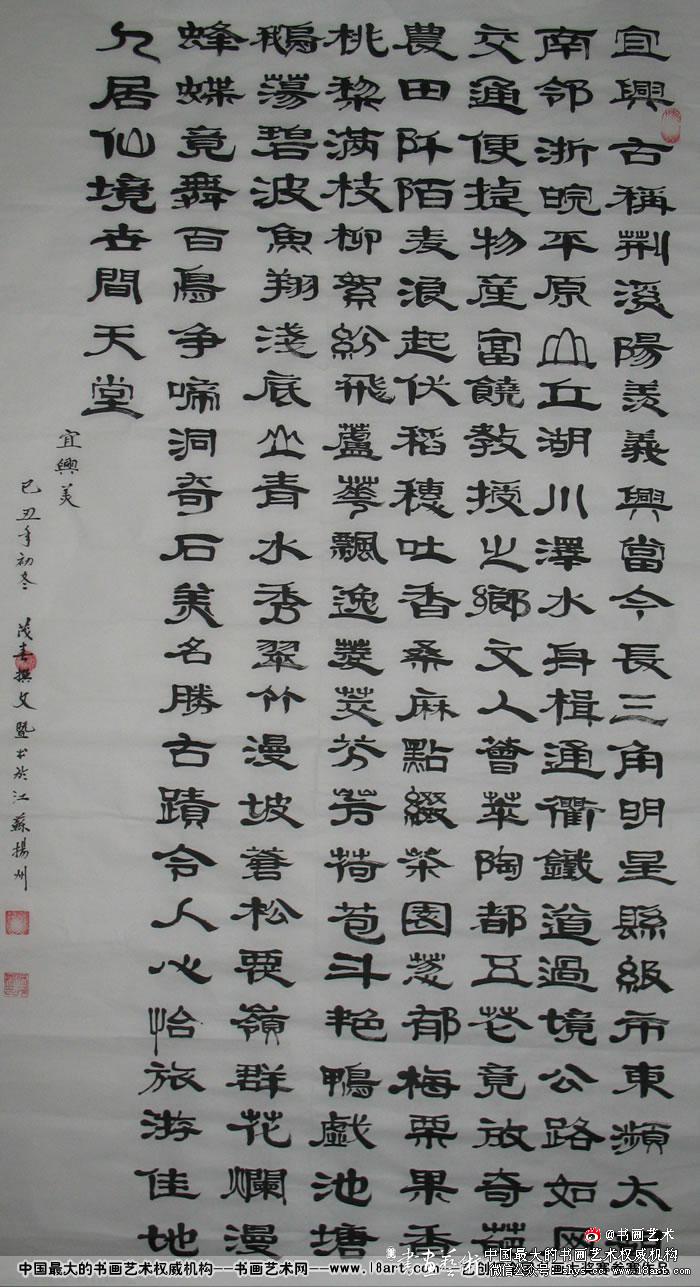 宜興古稱荆溪陽羡義興當今長三角明星縣級市東瀕太
南邻浙皖平原山丘湖川澤水舟楫通衢鐵道過境公路如网
交通便捷物産富饒教授之鄉文人薈萃陶都五花竟放奇葩
農田阡陌麦浪起伏稻穗吐香桑麻點綴茶園葱郁梅栗果香
桃棃满枝柳絮紛飛蘆蕐飄逸菱茭芬芳荷苞斗艳鴨戲池塘
鵝蕩碧波魚翔淺底山青水秀翠竹漫坡蒼松覆嶺群花爛漫
蜂蝶竟舞百鳥争啼洞奇石美名勝古蹟令人心怡旅游佳地
人居仙境世間天堂
宜興美
己丑年初冬 茂春撰文暨书於江蘇揚州
@书画艺术
中国最大的书画艺术权威机构---书画艺术网---www.l8art.com---艺